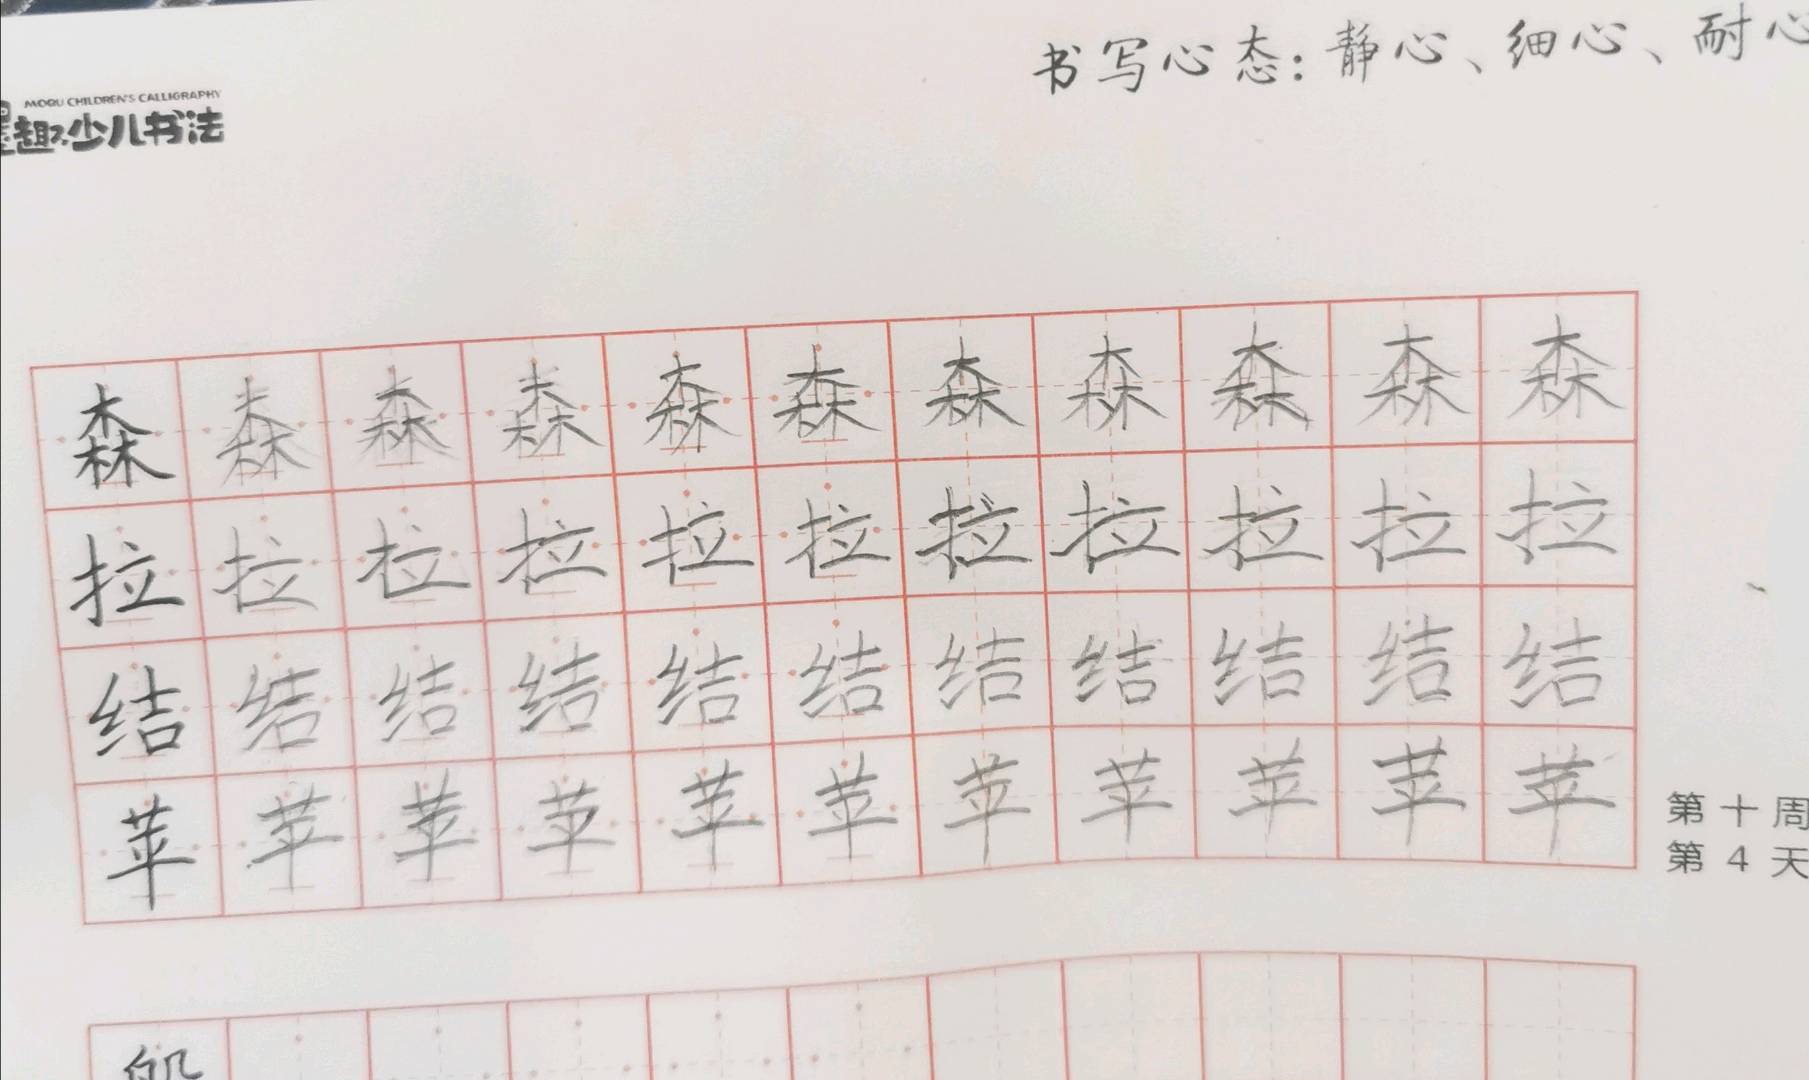 书写心态:静心、细心、耐心
MOQU CHILDREN'S CALLIGRAPHY
趣少儿书法
森森森森森森森森森森森
拉拉拉拉拉拉拉拉拉拉拉
结结结结结结结结结结结
苹苹苹苹苹苹苹苹苹苹苹
第十周
第4天